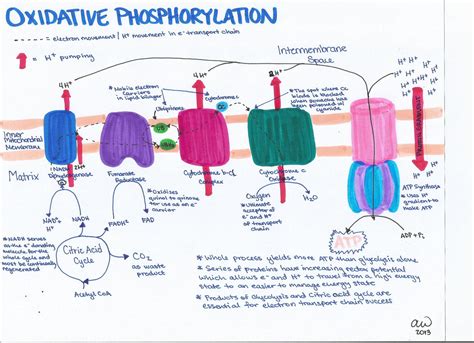 OXIDATIVE PHOSPHORYLATION
--- = electron movement / H⁺ movement in e⁻ transport chain
= H⁺ pumping
Intermembrane
Space
4H⁺
4H⁺
2H⁺
H⁺ H⁺
H⁺ H⁺
H⁺ H⁺
* Mobile electron
carriers
in lipid bilayer
Ubiquinone
Cytochrome c
CC
* The spot where CC
binds is blocked
when someone has
been poisoned w/
cyanide
Proton Gradient
Inner
Mitochondrial
Membrane
UQ
Matrix
NADH
dehydrogenase
2H⁺
Fumarate
Reductase
Cytochrome b-c₁
Complex
Cytochrome c
Oxidase
ATP Synthase
* Uses H⁺
gradient to
make ATP
* Oxidizes
quinol to quinone
for use as an e⁻
carrier
Oxygen
* Ultimate
acceptor of
e⁻ and H⁺
of transport
chain
H₂O
NAD⁺
H⁺
NADH
FADH²
FAD
* NADH serves
as the e⁻ donating
molecule for the
whole cycle and
must be continually
regenerated
Citric Acid
Cycle
CO₂
as waste
product
Acetyl CoA
ATP
ADP + Pi
* Whole process yields more ATP than glycolysis alone
* Series of proteins have increasing redox potential
which allows e⁻ and H⁺ to travel from a high energy
state to an easier to manage energy state
* Products of Glycolysis and Citric acid cycle are
essential for electron transport chain success
aw
2013